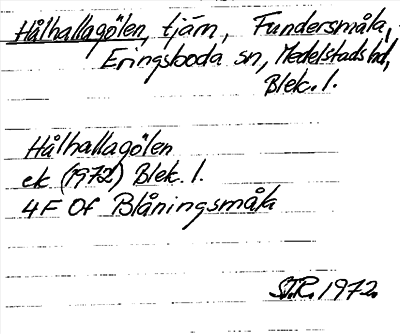 Hålhallagölen, tjärn, Fundersmåla,
Eringsboda sn, Medelstads hd,
Blek. l.
Hålhallagölen
ek (1972) Blek. l.
4F 0f Blåningsmåla
ST.R. 1972.